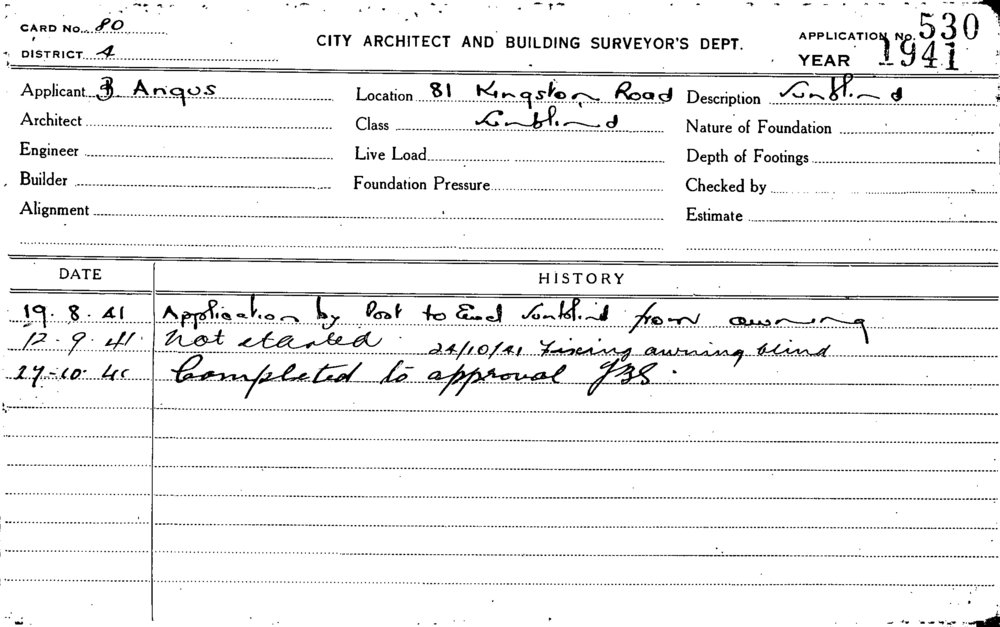 CARD NO. 80
DISTRICT 4
CITY ARCHITECT AND BUILDING SURVEYOR'S DEPT.
APPLICATION No. 530
YEAR 1941
Applicant B Angus
Location 81 Kingston Road
Description Sunblind
Architect
Class Sunblind
Nature of Foundation
Engineer
Live Load
Depth of Footings
Builder
Foundation Pressure
Checked by
Alignment
Estimate
DATE HISTORY
19.8.41 Application by Post to Sunblind from awning
12.9.41. Not started 24/10/41 Fixing awning blind
27-10-41 Completed to approval